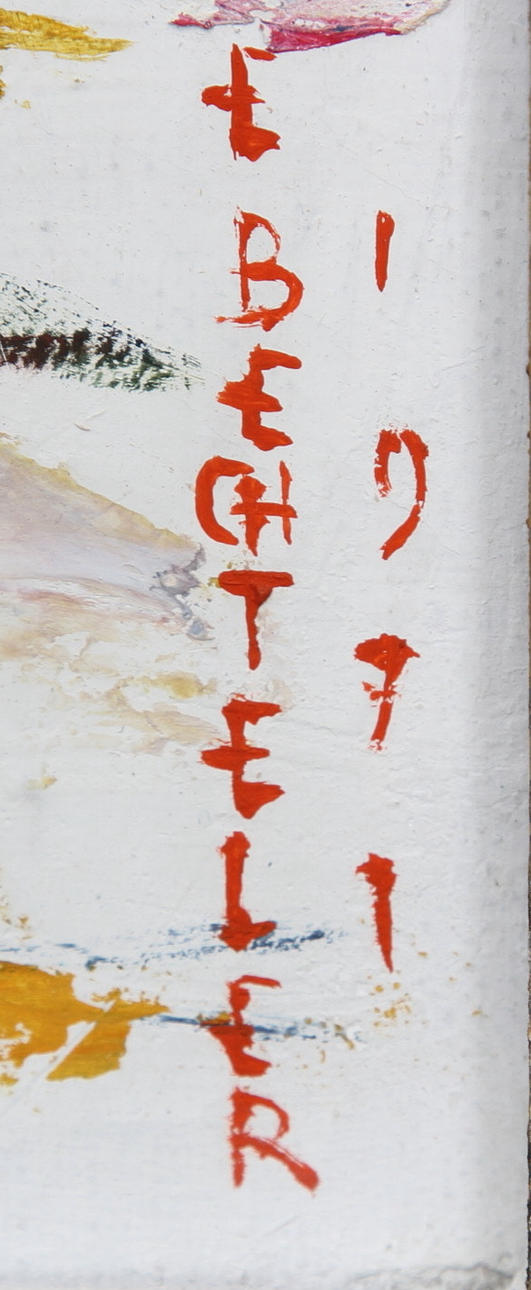 E BECHTELER
1971